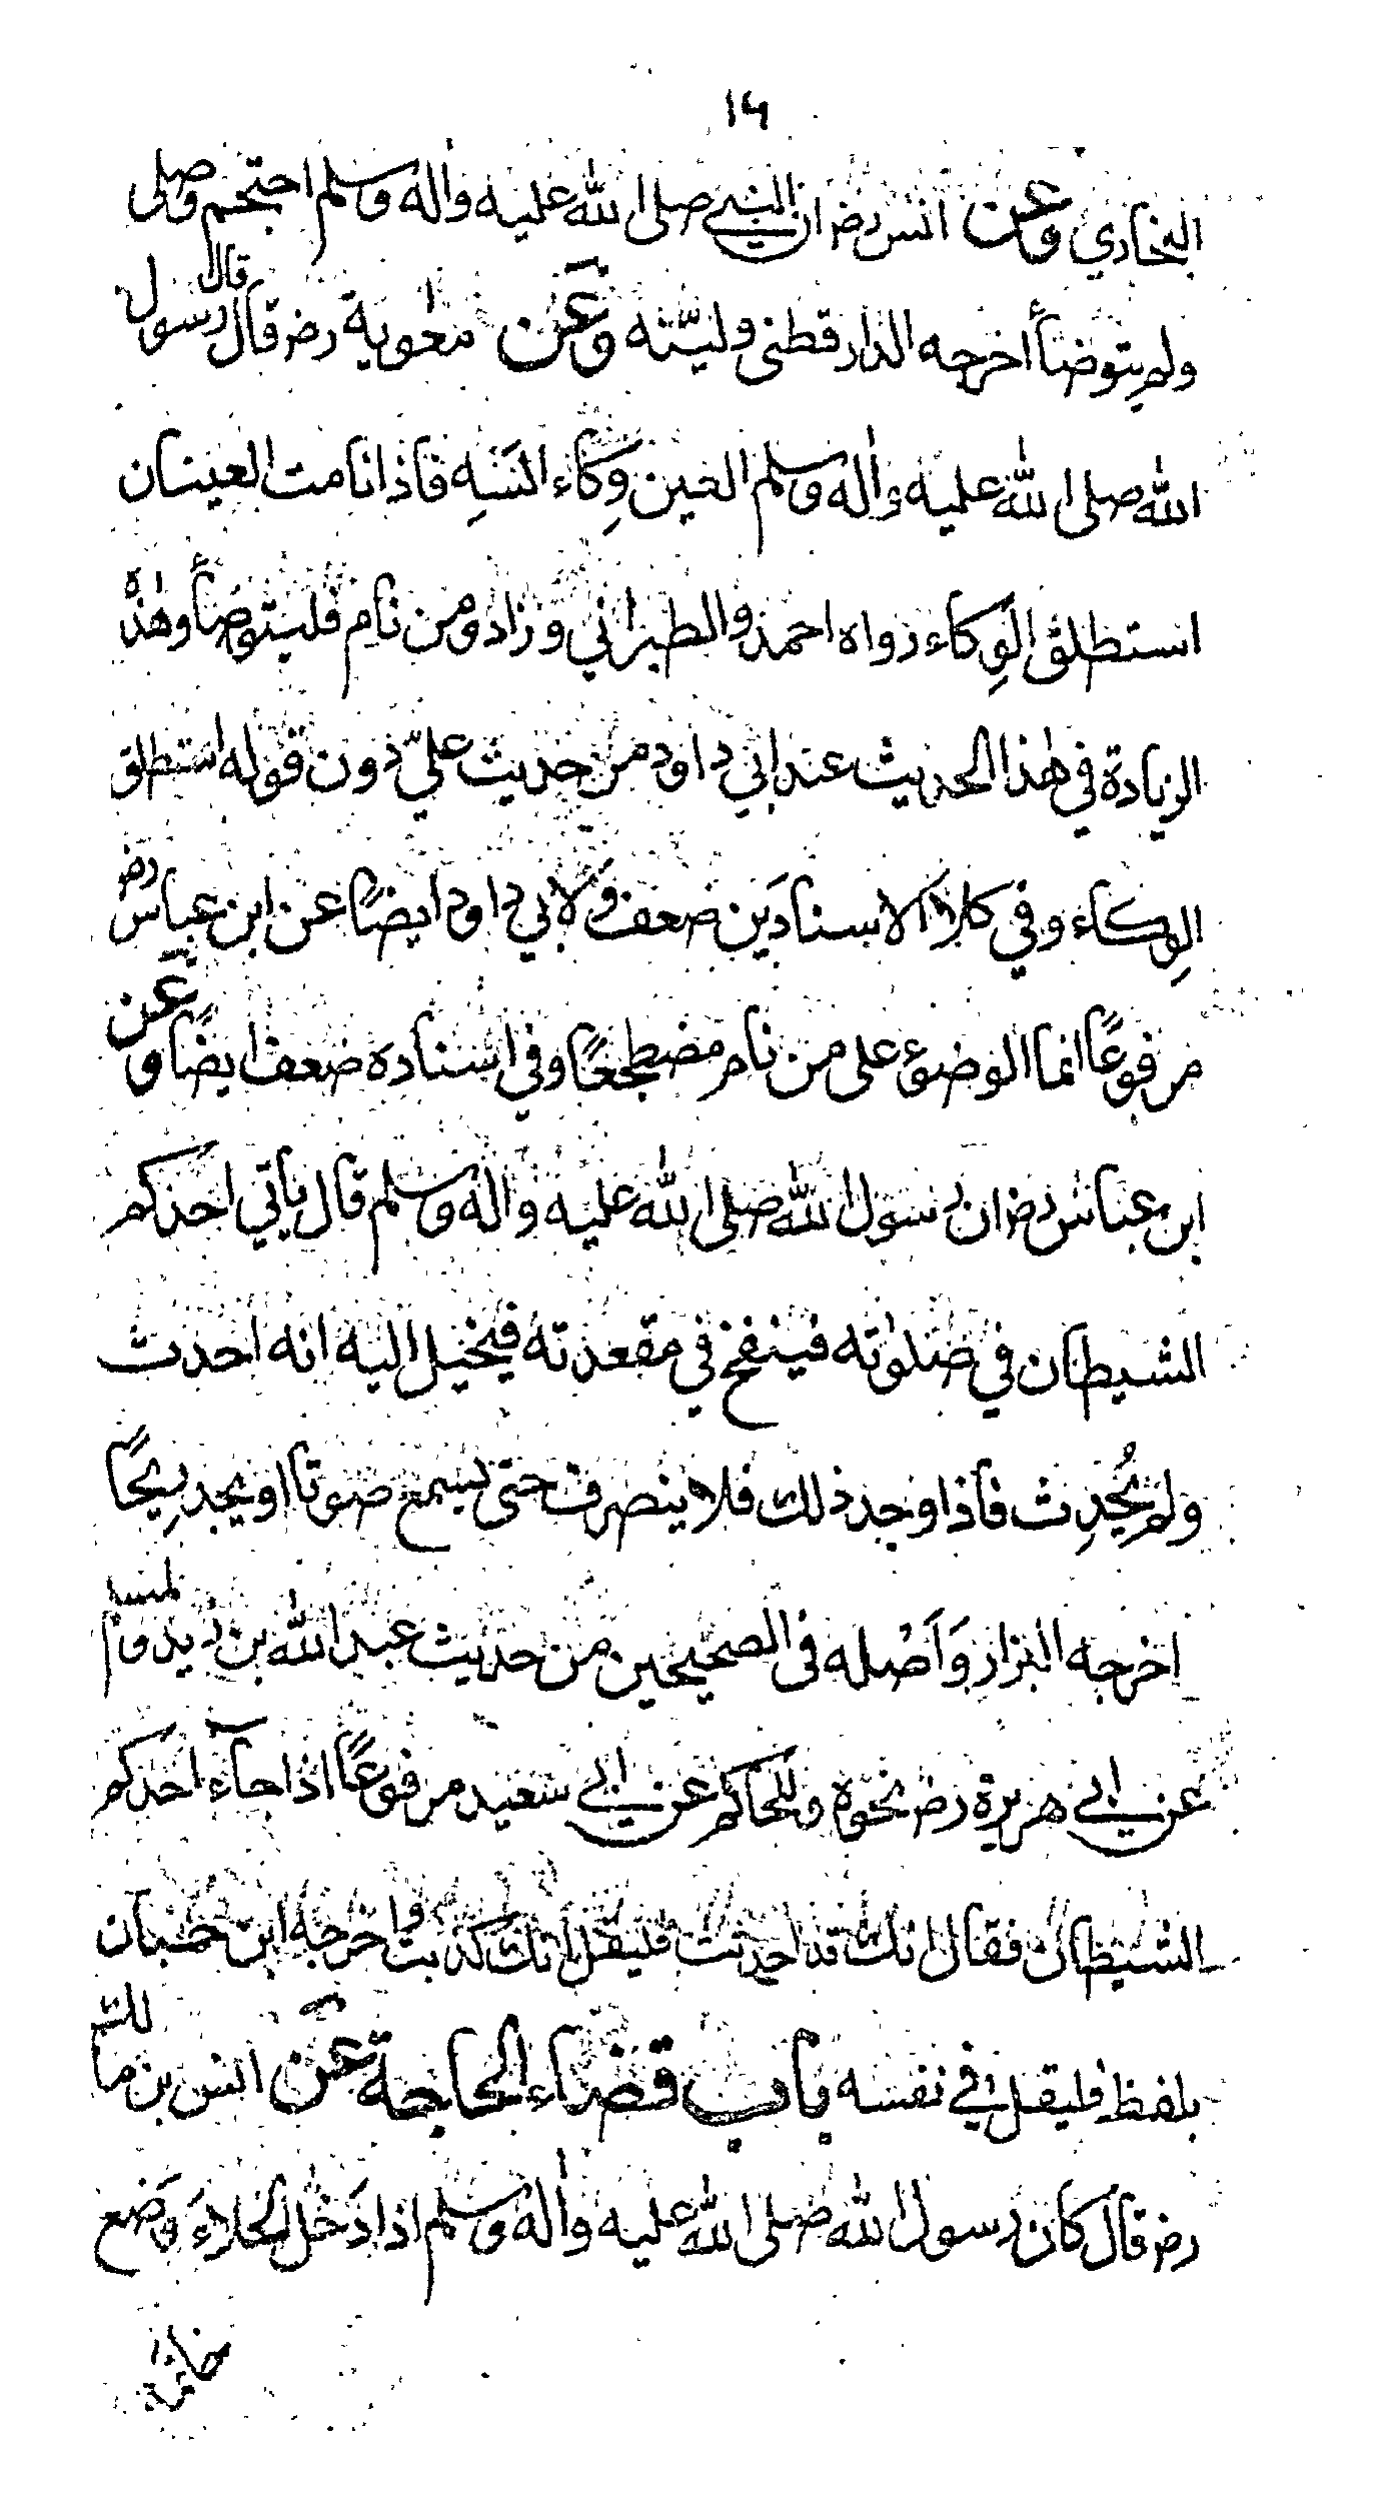 ١٦
البخاري وعن انس رضہ ان النبي صلى الله عليه واله وسلم احتجم وصلى
ولم يتوضأ أخرجه الدارقطنى وليّنه وعن معوية رضہ قال قال رسول
الله صلى الله عليه واله وسلم العين وِكاء السَهِ فاذا نامت العينان
استطلق الوِكاء رواه احمد والطبراني وزاد ومن نام فليتوضأ وهذه
الزيادة في هذا الحديث عند ابي داود من حديث عليّ دون قوله استطلق
الوِكاء وفي كلا الاسنادَين ضعف ولابي داود ايضًا عن ابن عباس رضہ
مرفوعًا انما الوضوء على من نام مضطجعًا وفي اسناده ضعف ايضًا وعن
ابن عباس رضہ ان رسول الله صلى الله عليه واله وسلم قال ياتي احدكم
الشيطان في صلوٰته فينفخ في مقعدته فيخيل اليه انه احدث
ولم يُحدِث فاذا وجد ذلك فلا ينصرف حتى يسمع صوتا او يجد رِيحًا
اخرجه البزار وَاَصْله فى الصحيحين من حديث عبد الله بن زيد ولمسلم
عن ابي هريرة رضہ نحوه وللحاكم عن ابي سعيد مرفوعًا اذا جآء احدكم
الشيطان فقال انك قد احدثت فليقل انك كذبت واخرجه ابن حبان
بلفظ فليقل في نفسه باب قضاء الحاجة عن انس بن مالك
رضہ قال كان رسول الله صلى الله عليه واله وسلم اذا دَخل الخلاءَ وَضع
خاتمه